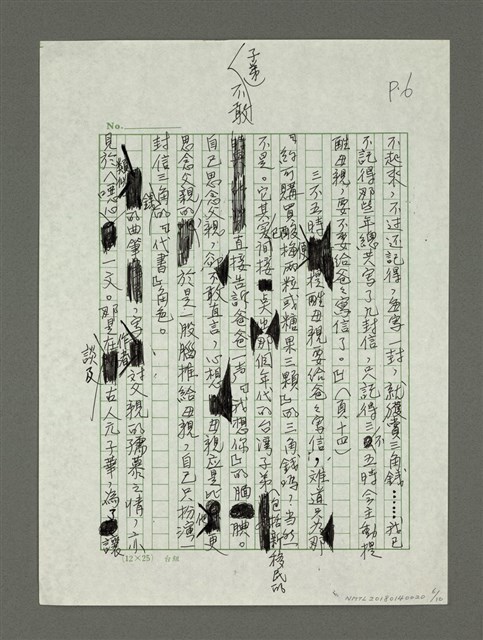 P.6
No.
不起來，不过还記得，每寫一封，就獲賣三角錢……我已
不記得那些年總共寫了几封信，只記得三不五時会主動提
醒母親，要不要給爸爸寫信了。」（頁十四）
三不五時便提醒母親要給爸爸寫信，难道只为那
「約可購買酸梅兩粒或糖果三顆」的三角錢嗎？当然
不是。它其实间接点出那個年代的台灣子弟（包括新移民的
子弟）還不敢直接告訴爸爸一声「我想你」的腼腆。
自己思念父親，卻不敢直言，心想母親应是比他更
思念父親的，於是一股腦推給母親，自己只扮演一
封信三角錢的「代書」角色。
類似的曲筆，寫作者对父親的孺慕之情，亦
見於〈 〉一文。那是在談及古人元子華，為了讓
(12×25)
NMTL20180140020 6/10